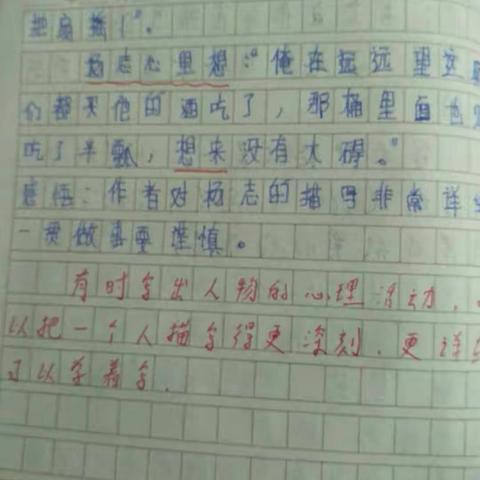 杨志心里想:“俺在远远望这
们都买他的酒吃了,那桶里面也
吃了半瓢,想来没有大碍。”
感悟:作者对杨志的描写非常详
一贯做事要谨慎。
有时写出人物的心理活动,
以把一个人描写得更深刻,更详
可以学着写.